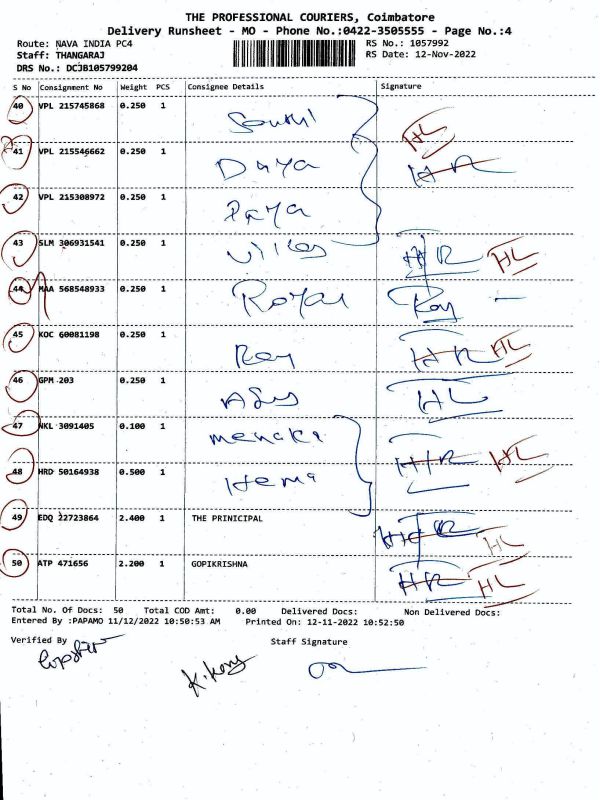 THE PROFESSIONAL COURIERS, Coimbatore
Delivery Runsheet - MO - Phone No.:0422-3505555 - Page No.:4
Route: NAVA INDIA PC4 RS No.: 1057992
Staff: THANGARAJ RS Date: 12-Nov-2022
DRS No.: DCJB105799204
S No Consignment No Weight PCS Consignee Details Signature
40 VPL 215745868 0.250 1 HL
41 VPL 215546662 0.250 1 Daya HR
42 VPL 215308972 0.250 1 Paya
43 SLM 306931541 0.250 1 HR HL
44 MAA 568548933 0.250 1 Royal Roy
45 KOC 60081198 0.250 1 Roy HR HL
46 GPM 203 0.250 1 HL
47 NKL 3091405 0.100 1 menaka
48 HRD 50164938 0.500 1 Hema HR HL
49 EDQ 22723864 2.400 1 THE PRINICIPAL HR HL
50 ATP 471656 2.200 1 GOPIKRISHNA HR HL
Total No. Of Docs: 50 Total COD Amt: 0.00 Delivered Docs: Non Delivered Docs:
Entered By :PAPAMO 11/12/2022 10:50:53 AM Printed On: 12-11-2022 10:52:50
Verified By Staff Signature